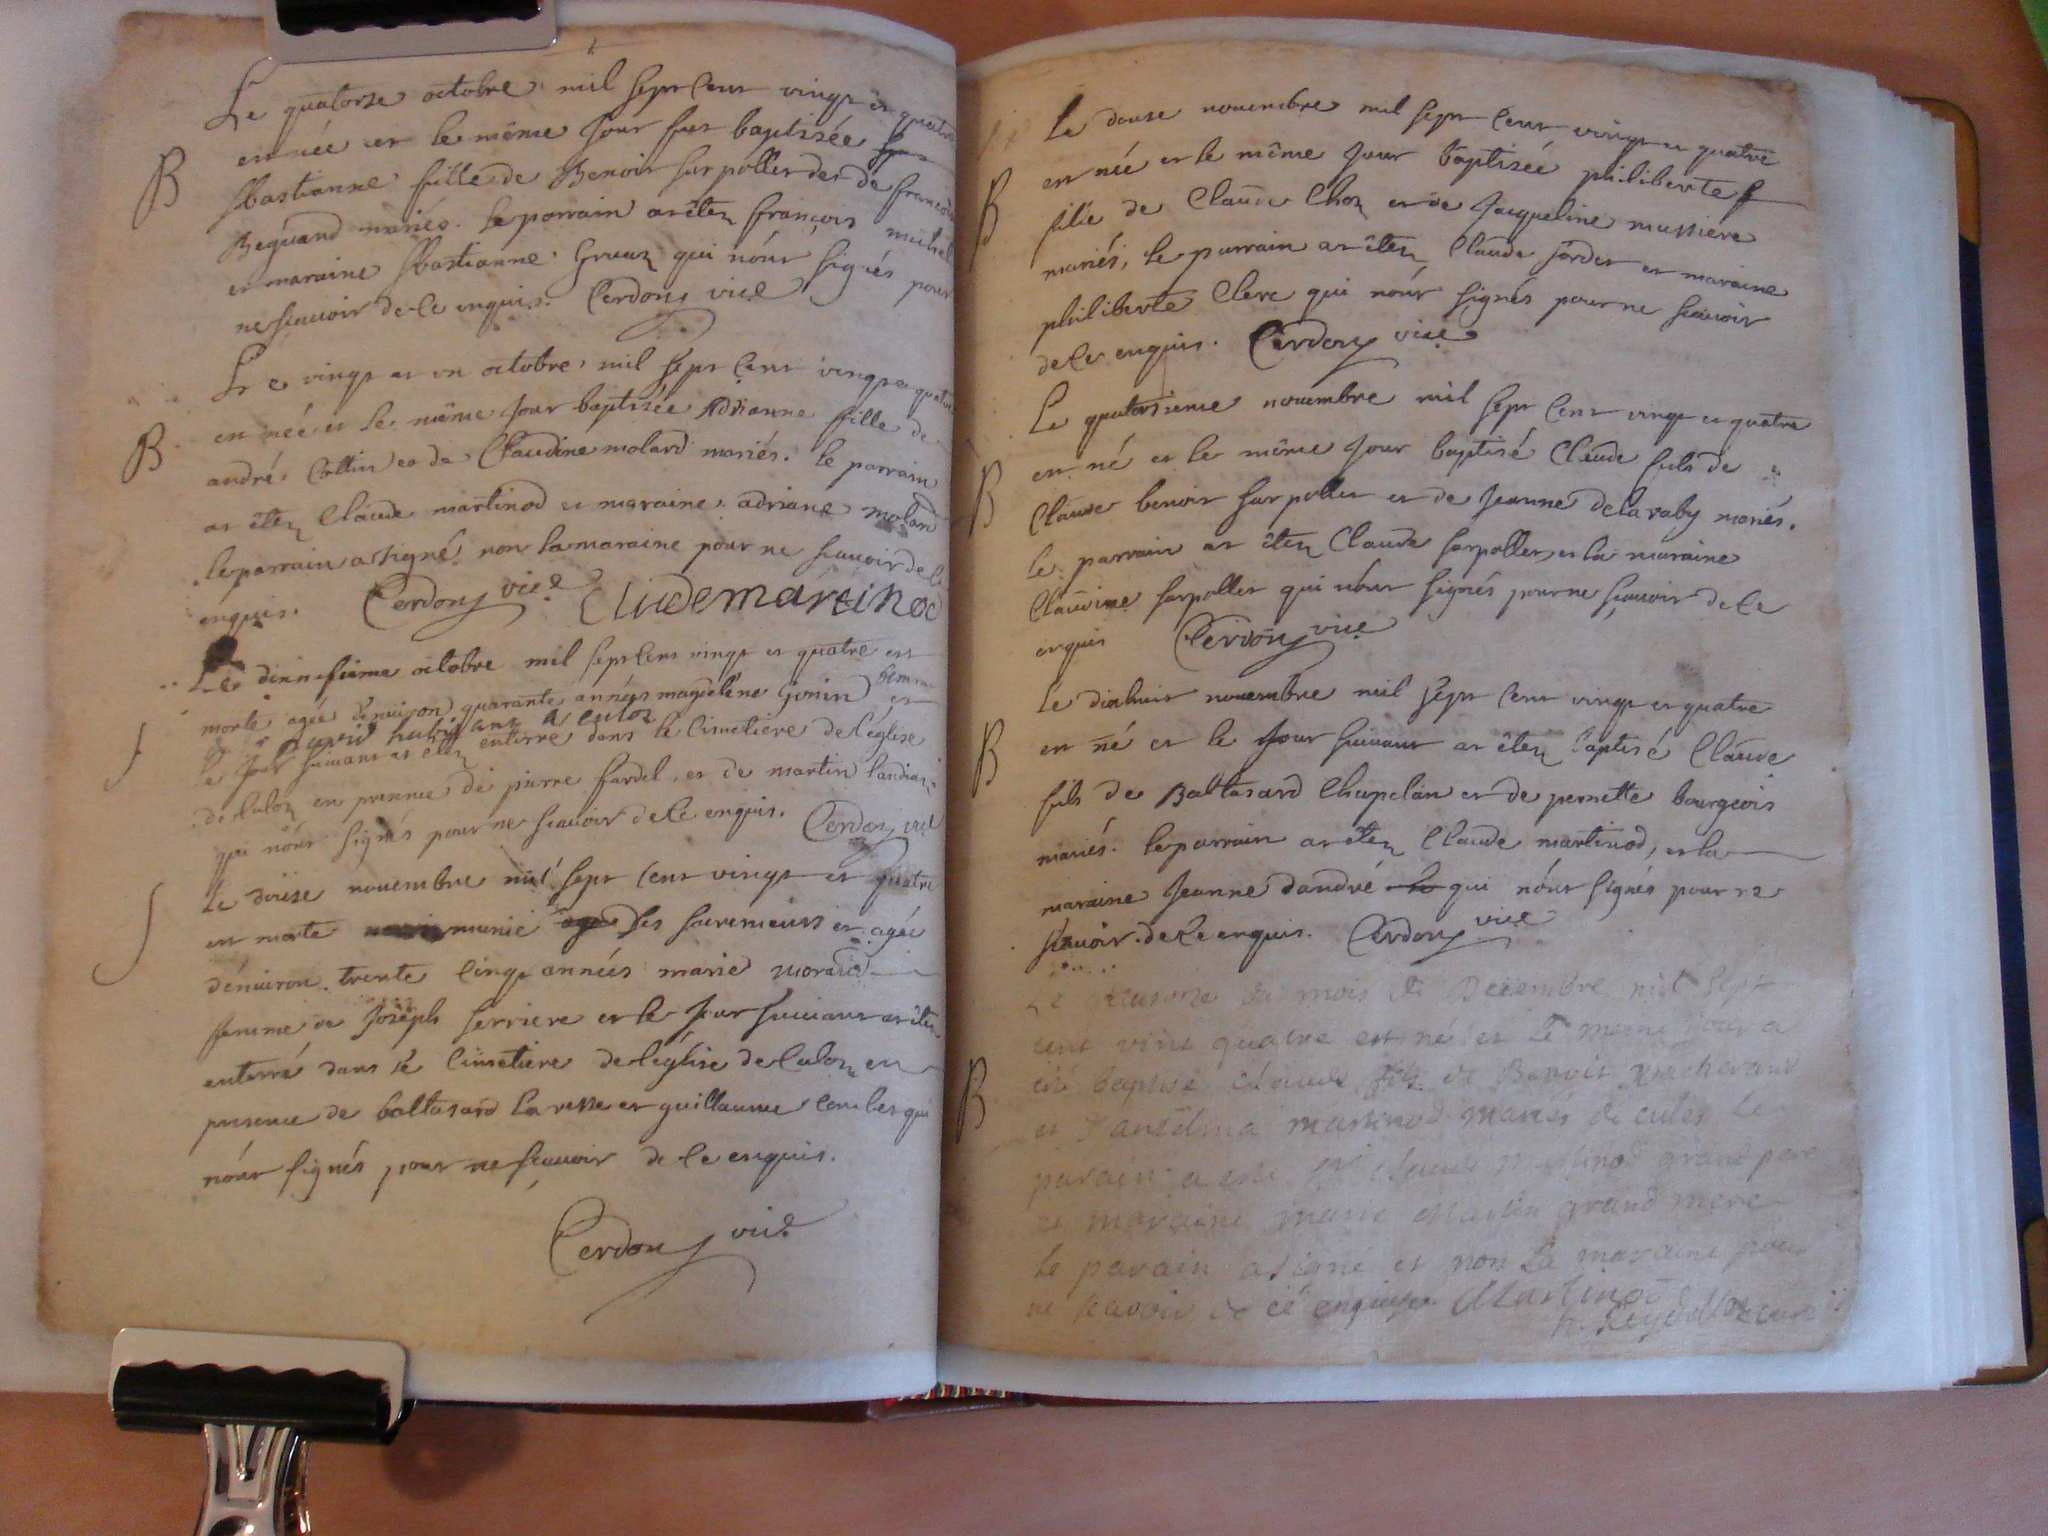 Le quatorze octobre mil sept cent vingt et quatre
est née et le même jour fut baptisée
sbastianne fille de Benoit sarpollet et de françoise
Bequand mariés. le parrain at êtez françois michel
et maraine sbastianne Gruaz qui nónt signés pour
ne scauoir de ce enquis. Cerdon vice
Le vingt et un octobre mil sept cent vingt et quatre
est née et le même jour baptisée Adrianne fille de
andré Cottin et de Claudine molard mariés. le parrain
at êtez Claude martinod et maraine adriane molard
le parrain a signé non la maraine pour ne scauoir de ce
enquis. Cerdon vice Claudemartinod
Le octobre mil sept cent vingt et quatre est
morte agée denuiron quarante années magdelêne Gonin femme
habitant a culoz et
le jour suiuant at êtez enterre dans le cimetiere de leglise
de Culoz en presence de pierre fardel et de martin
qui nónt signés pour ne scauoir de ce enquis. Cerdon vice
Le douse nouembre mil sept cent vingt et quatre
est morte munie des sacrements et agée
dénuiron trente cinq années marie morard
femme de Joseph serriere et le jour suiuant at êtez
enterré dans le cimetiere de leglise de Culoz en
presence de baltasard et guillaume qui
nónt signés pour ne scauoir de ce enquis.
Cerdon vice
Le douse nouembre mil sept cent vingt et quatre
est née et le même jour baptisée philiberte
fille de Claude Choz et de Jacqueline mussiere
mariés, le parrain at êtez Claude sordet et maraine
philiberte Clerc qui nónt signés pour ne scauoir
de ce enquis. Cerdon vice
Le quatorsieme nouembre mil sept cent vingt et quatre
est né et le même jour baptisé Claude fils de
Claude benoit sarpollet et de Jeanne delaraby mariés.
le parrain at êtez Claude sarpollet et la maraine
Claudine sarpollet qui nónt signés pour ne scauoir de ce
enquis Cerdon vice
Le dixhuit nouembre mil sept cent vingt et quatre
est né et le jour suiuant at êtez baptisé Claude
fils de Baltasard Chapelan et de pernette bourgeois
mariés. le parrain at êtez Claude martinod, et la
maraine Jeanne dandré qui nónt signés pour ne
scauoir de ce enquis. Cerdon vice
Le du mois de Decembre mil sept
cent vint quatre est né et le meme jour a
eté baptisé Claude fils de Benoit
et Martinod maries de culoz le
parain a esté Sr Claude Martinod grand pere
et maraine marie Martin grand mere
le parain a signé et non la maraine pour
ne scavoir de ce enquise CMartinod
curé